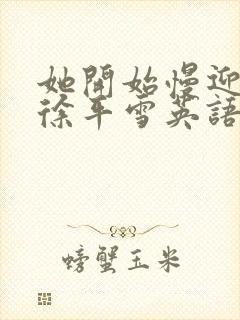 她開始慢迎
徐年雪英語
螃蟹玉米